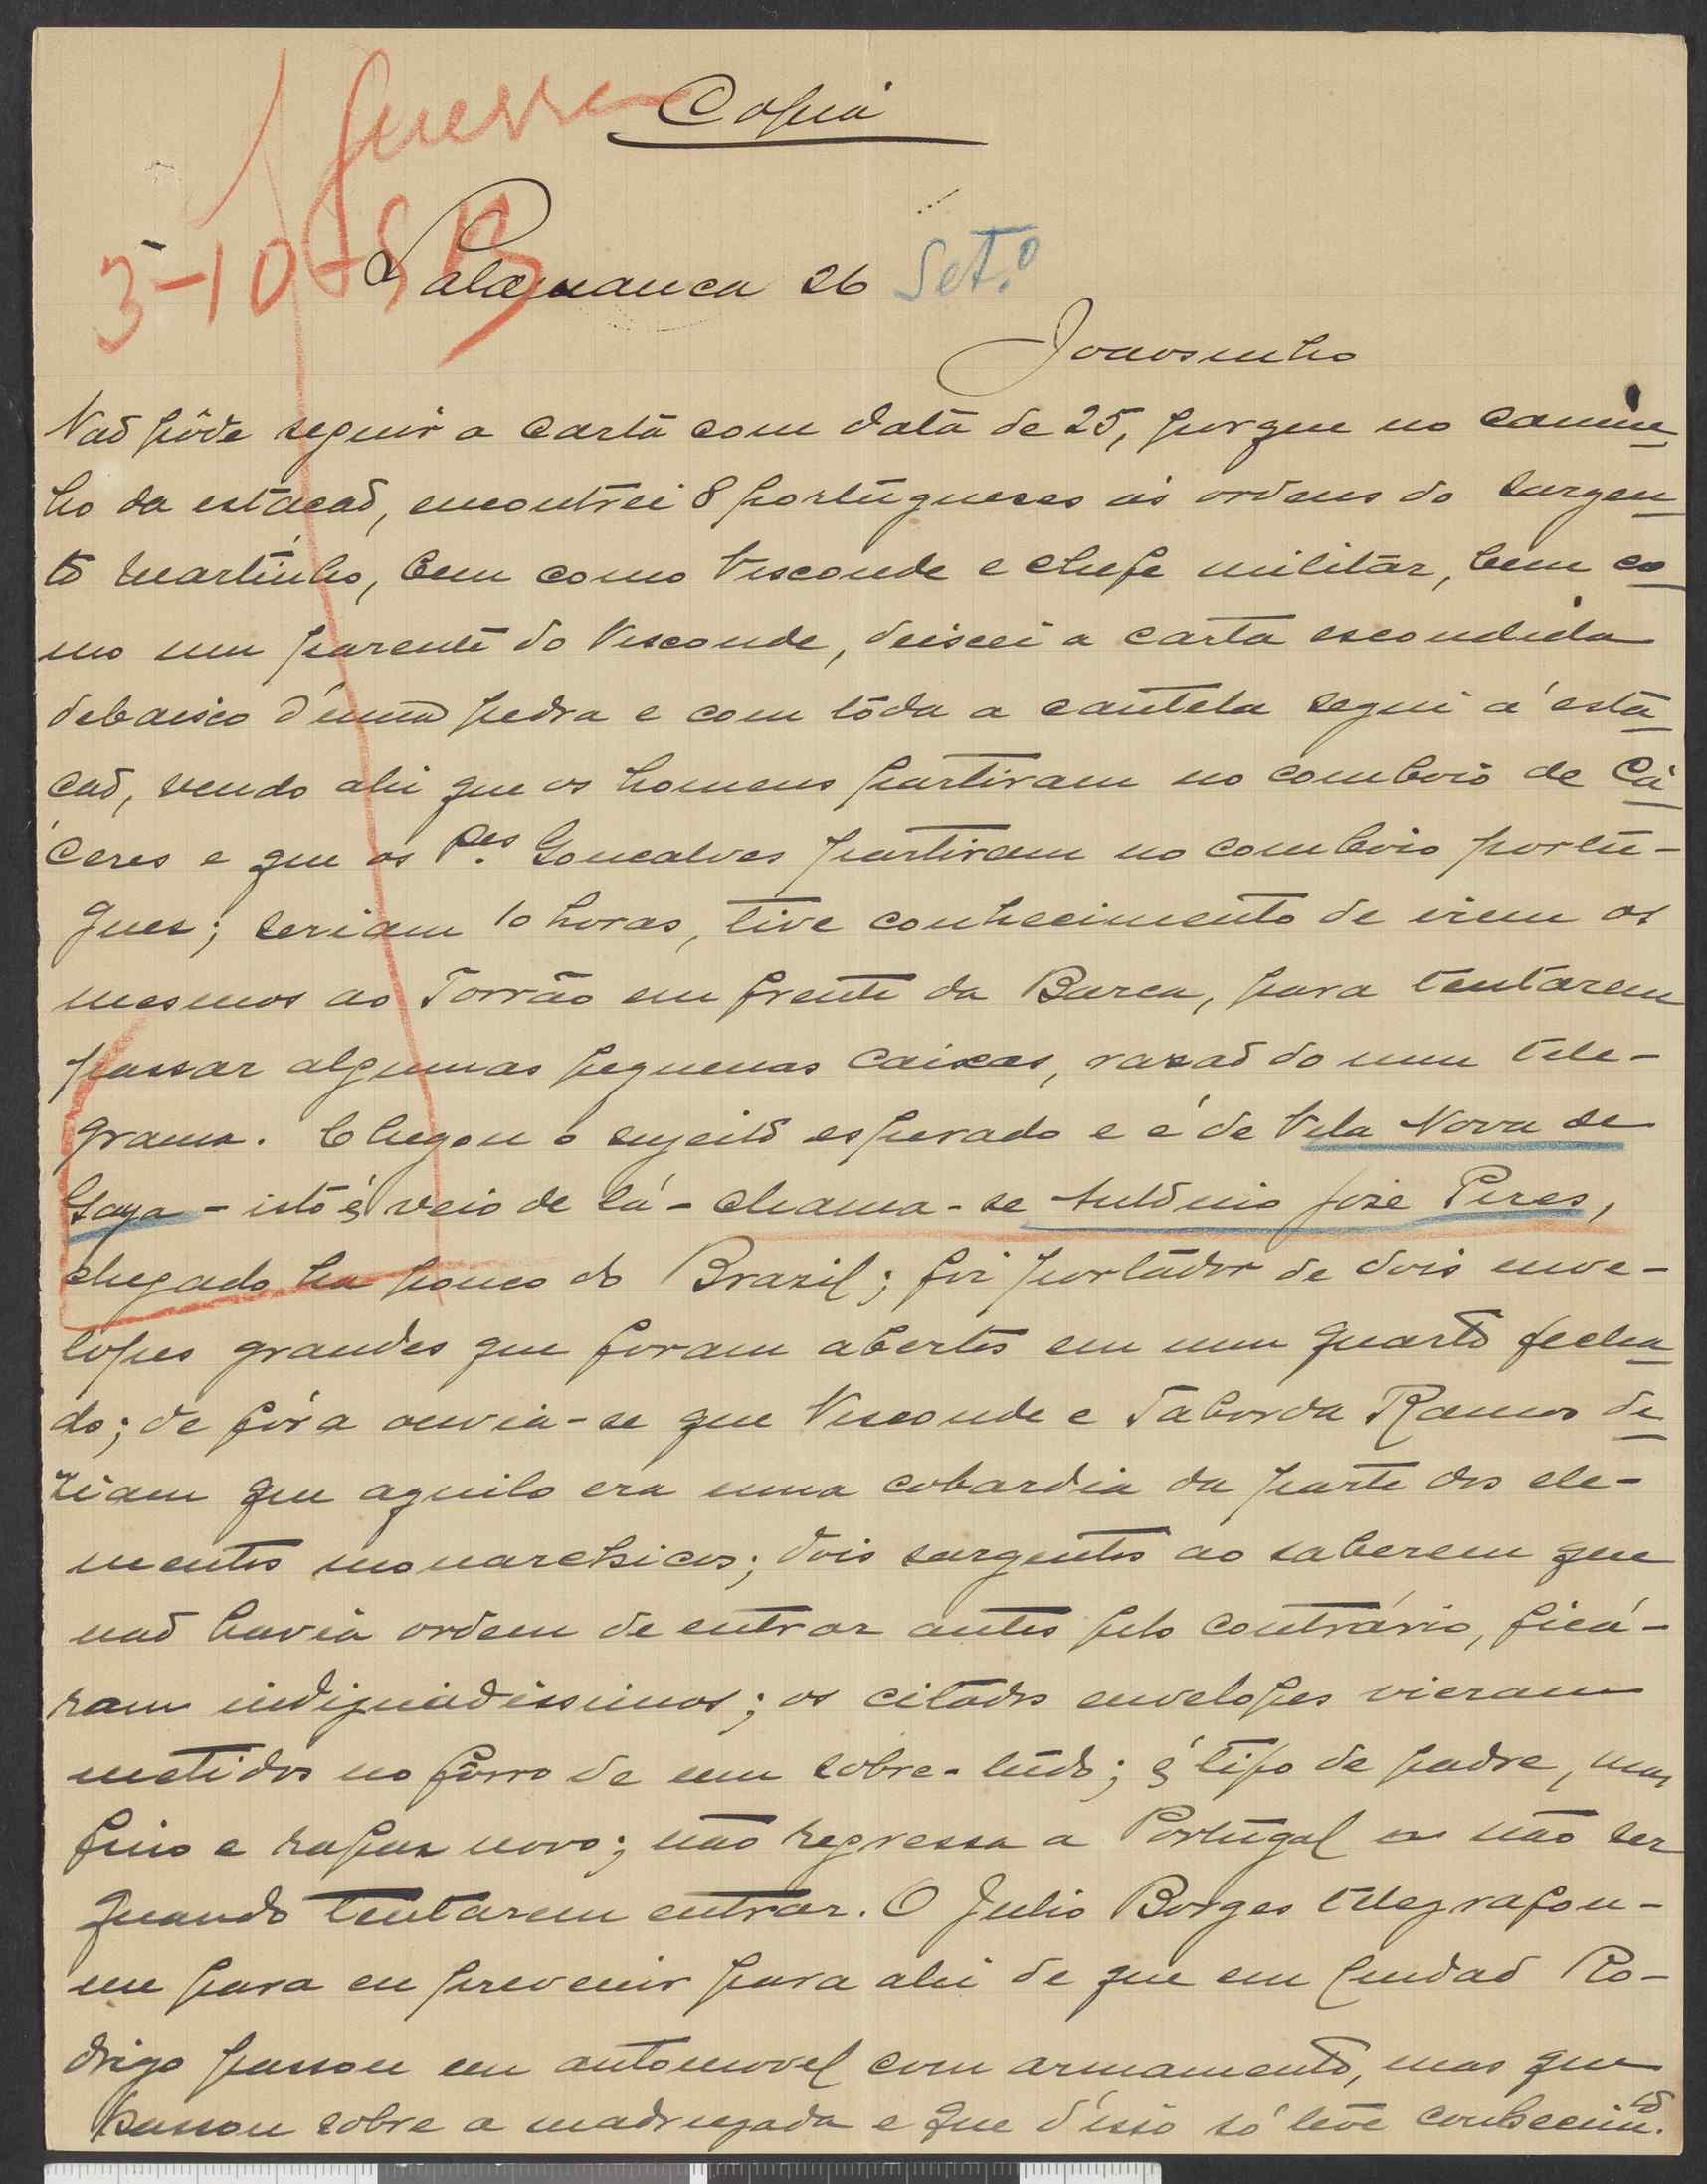 Guerra
Copia
3-10
Salamanca 26 Set.º
Joaosinho
Naõ pôde seguir a carta com data de 25, porque no camin
ho da estaçaõ, encontrei 8 portugueses ás ordens do sargen
to Martinho, bem como Visconde e chefe militar, bem co
mo um parente do Visconde, deixei a carta escondida
debaixo d'uma pedra e com tôda a cautela segui á esta
çaõ, vendo ahi que os homens partiram no comboio de Cá
ceres e que os Pes. Goncalves partiram no comboio portu-
gues; seriam 10 horas, tive conhecimento de irem os
mesmos ao Torrão em frente da Barca, para tentarem
passar algumas pequenas caixas, razaõ do meu tele-
grama. Chegou o sujeito esperado e é de Vila Nova de
Gaya - isto é, veio de lá - chama-se António José Peres,
chegado ha pouco do Brazil; foi portador de dois enve-
lopes grandes que foram abertos em um quarto fecha
do; de fóra ouvia-se que Visconde e Taborda Ramos di
ziam que aquilo era uma cobardia da parte dos ele-
mentos monarchicos; dois sargentos ao saberem que
naõ havia ordem de entrar antes pelo contrário, ficá-
ram indignadissimos; os citados envelopes vieram
metidos no fôrro de um sobre-tudo; é tipo de padre, mas
fino e rapaz novo; não regressa a Portugal a não ser
quando tentarem entrar. O Julio Borges telegrafou-
me para eu prevenir para ahi de que em Ciudad Ro-
drigo passou um automovel com armamento, mas que
passou sobre a madrugada e que d'isso só teve conhecimto.